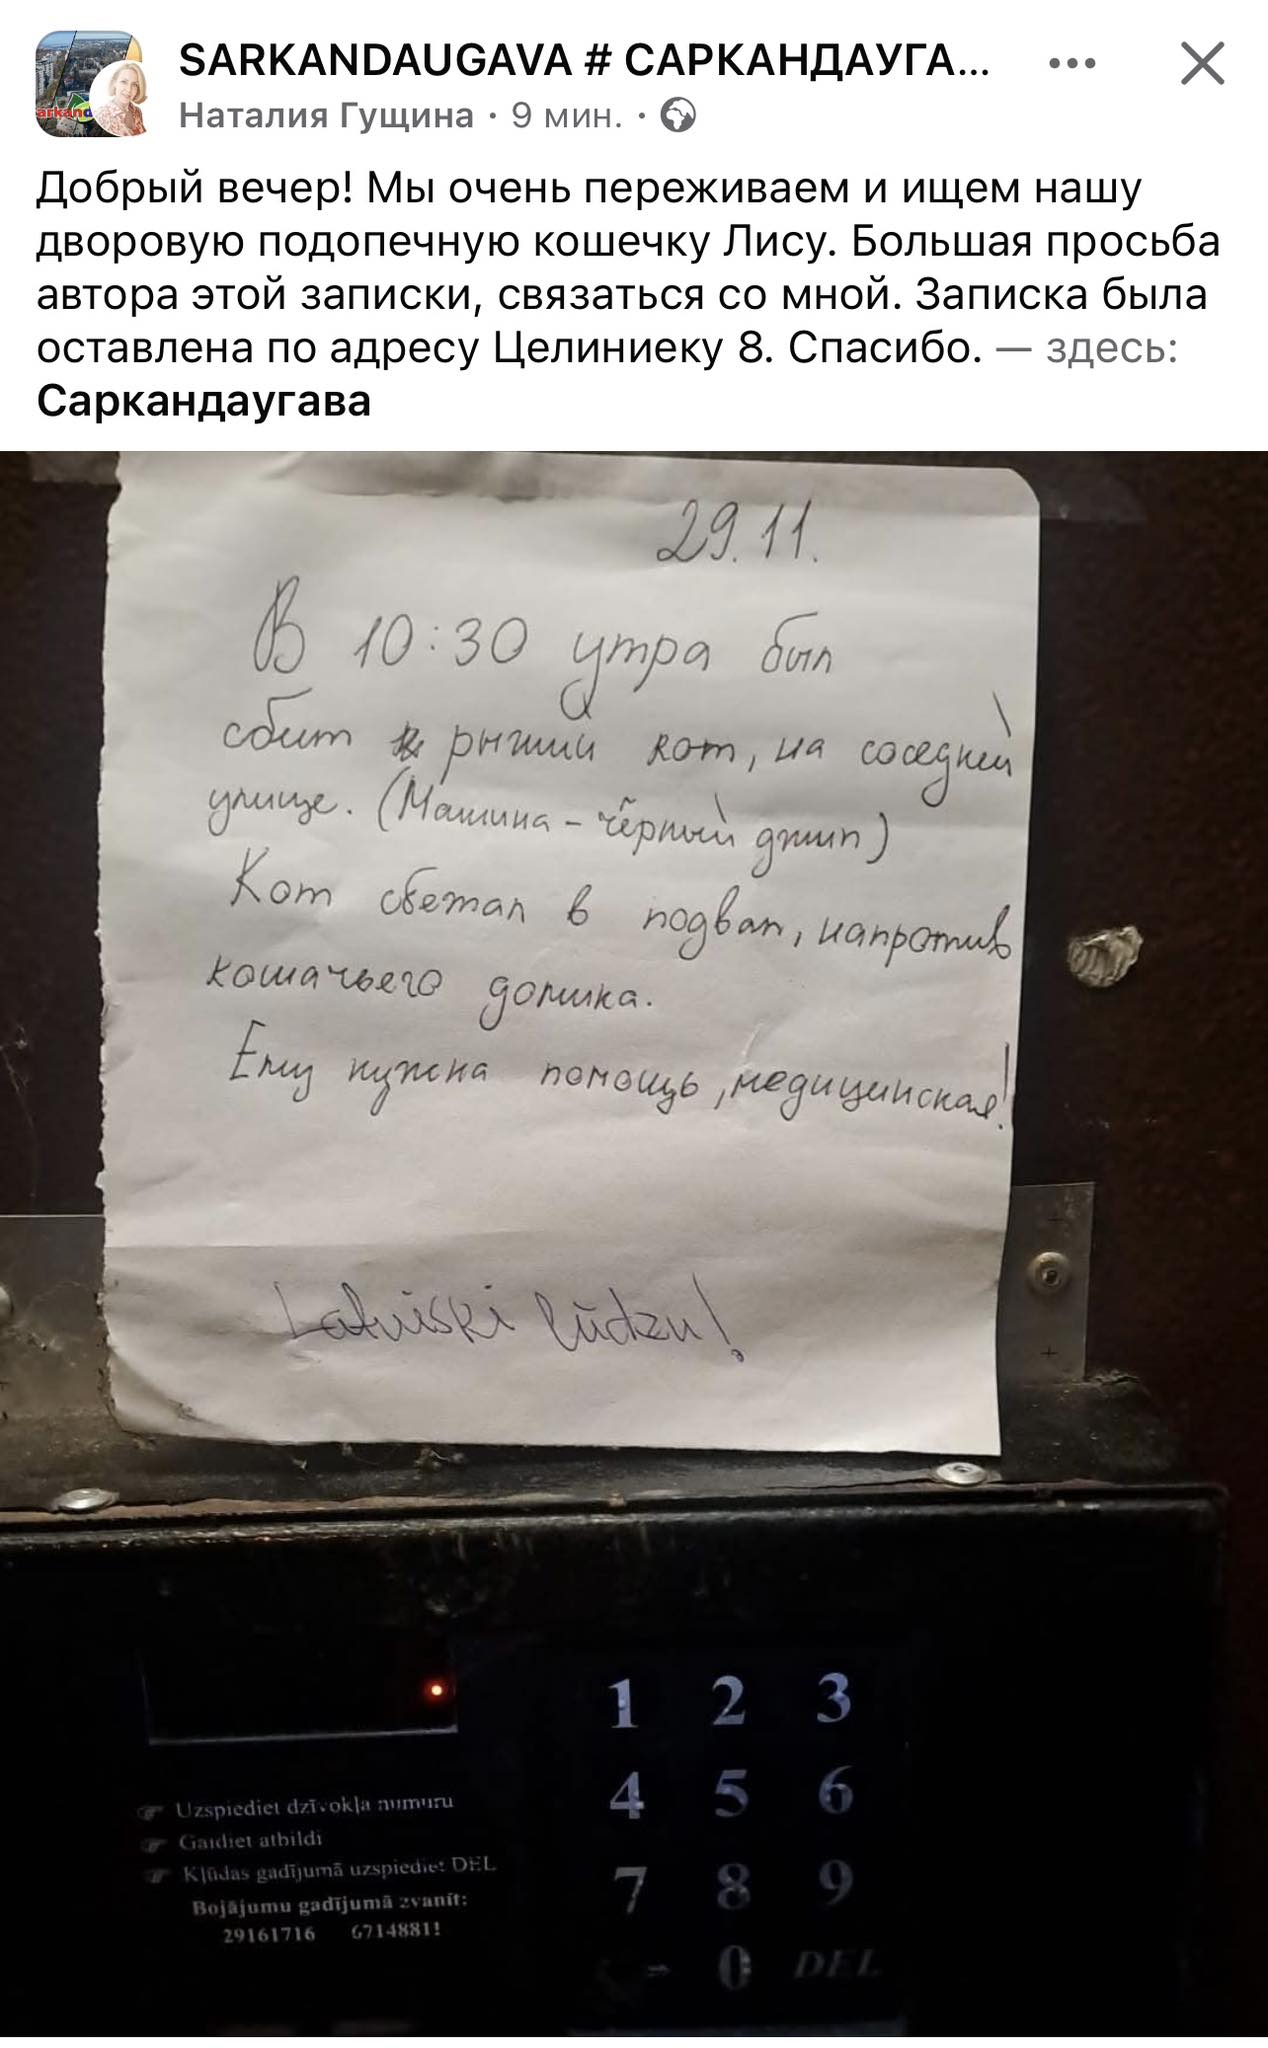 SARKANDAUGAVA # САРКАНДАУГА...
Наталия Гущина · 9 мин. ·
Добрый вечер! Мы очень переживаем и ищем нашу
дворовую подопечную кошечку Лису. Большая просьба
автора этой записки, связаться со мной. Записка была
оставлена по адресу Целиниеку 8. Спасибо. — здесь:
Саркандаугава
29.11.
В 10:30 утра был
сбит рыжий кот, на соседней
улице. (Машина - чёрный джип)
Кот сбежал в подвал, напротив
кошачьего домика.
Ему нужна помощь, медицинская!
Latviski lūdzu!
1 2 3
4 5 6
7 8 9
0 DEL
Uzspiediet dzīvokļa numuru
Gaidiet atbildi
Kļūdas gadījumā uzspiediet DEL
Bojājumu gadījumā zvanīt:
29161716 67148811